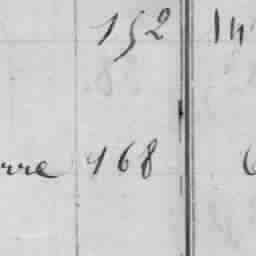 152 14
rre 168